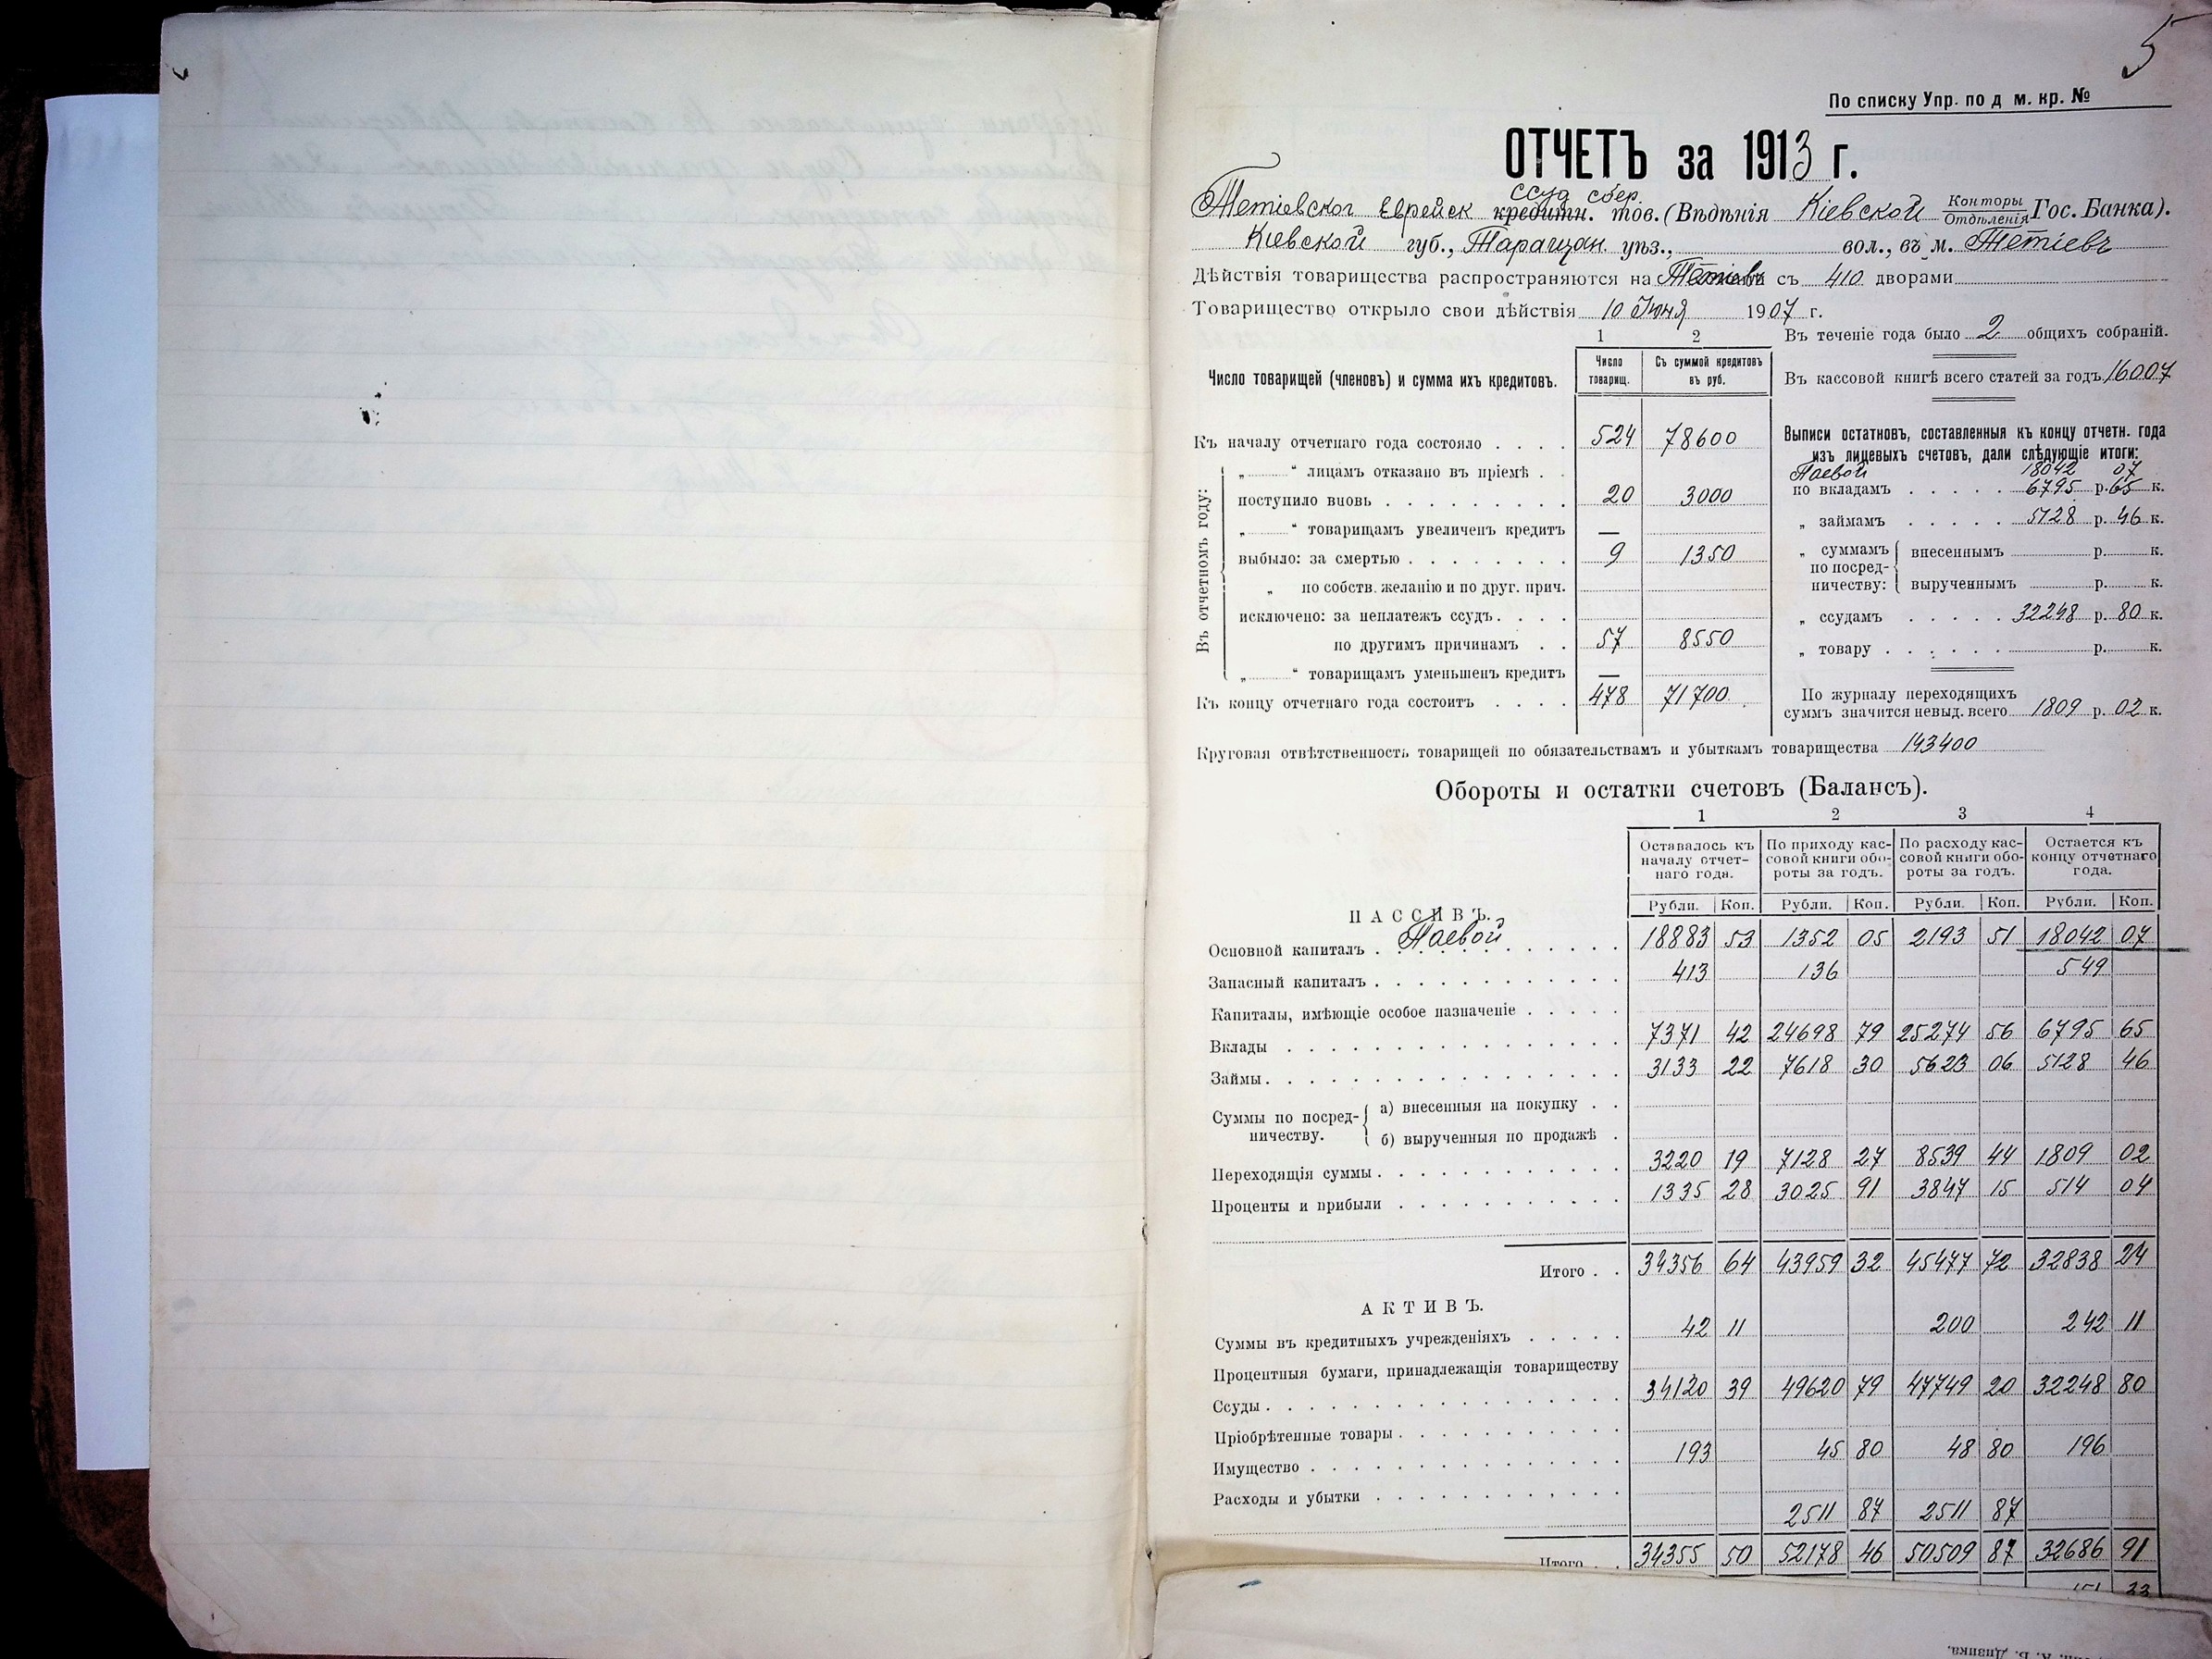 5
По списку Упр. по д м. кр. №
ОТЧЕТЪ за 1913 г.
ссуд сбер.
Тетіевског Еврейск кредитн. тов. (Вѣдѣнія Кіевской Конторы Отдѣленія Гос. Банка).
Кіевской губ., Таращан. уѣз., вол., въ м. Тетіевъ
Дѣйствія товарищества распространяются на Тетіевъ съ 410 дворами
Товарищество открыло свои дѣйствія 10 Іюня 1907 г.
1 2
Число товарищей (членовъ) и сумма ихъ кредитовъ. Число товарищ. Съ суммой кредитовъ въ руб.
Къ началу отчетнаго года состояло . . . . 524 78600
Въ отчетномъ году:
„ “ лицамъ отказано въ пріемѣ . .
поступило вновь . . . . . . . . . 20 3000
„ “ товарищамъ увеличенъ кредитъ —
выбыло: за смертью . . . . . . . . 9 1350
„ по собств. желанію и по друг. прич.
исключено: за неплатежъ ссудъ . . . .
по другимъ причинамъ . . 57 8550
„ “ товарищамъ уменьшенъ кредитъ —
Къ концу отчетнаго года состоитъ . . . . 478 71700
Въ теченіе года было 2 общихъ собраній.
Въ кассовой книгѣ всего статей за годъ 16007
Выписи остатновъ, составленныя къ концу отчетн. года
изъ лицевыхъ счетовъ, дали слѣдующіе итоги:
Паевой 18042 07
по вкладамъ . . . . . 6795 р. 65 к.
„ займамъ . . . . . 5128 р. 46 к.
„ суммамъ по посредничеству: внесеннымъ р. к.
вырученнымъ р. к.
„ ссудамъ . . . . . 32248 р. 80 к.
„ товару . . . . . . р. к.
По журналу переходящихъ
суммъ значится невыд. всего 1809 р. 02 к.
Круговая отвѣтственность товарищей по обязательствамъ и убыткамъ товарищества 143400
Обороты и остатки счетовъ (Балансъ).
1 2 3 4
Оставалось къ началу отчетнаго года. По приходу кассовой книги обороты за годъ. По расходу кассовой книги обороты за годъ. Остается къ концу отчетнаго года.
Рубли. Коп. Рубли. Коп. Рубли. Коп. Рубли. Коп.
ПАССИВЪ.
Основной капиталъ . Паевой 18883 53 1352 05 2193 51 18042 07
Запасный капиталъ . . . . . . . . . . . . 413 136 549
Капиталы, имѣющіе особое назначеніе . . . . .
Вклады . . . . . . . . . . . . . . . . 7371 42 24698 79 25274 56 6795 65
Займы . . . . . . . . . . . . . . . . . 3133 22 7618 30 5623 06 5128 46
Суммы по посредничеству. а) внесенныя на покупку . .
б) вырученныя по продажѣ .
Переходящія суммы . . . . . . . . . . . . 3220 19 7128 27 8539 44 1809 02
Проценты и прибыли . . . . . . . . . . . 1335 28 3025 91 3847 15 514 04
Итого . . 34356 64 43959 32 45477 72 32838 24
АКТИВЪ.
Суммы въ кредитныхъ учрежденіяхъ . . . . . 42 11 200 242 11
Процентныя бумаги, принадлежащія товариществу
Ссуды . . . . . . . . . . . . . . . . . 34120 39 49620 79 47749 20 32248 80
Пріобрѣтенные товары . . . . . . . . . . .
Имущество . . . . . . . . . . . . . . . 193 45 80 48 80 196
Расходы и убытки . . . . . . . . . . . .
2511 87 2511 87
Итого . . 34355 50 52178 46 50509 87 32686 91
151 33